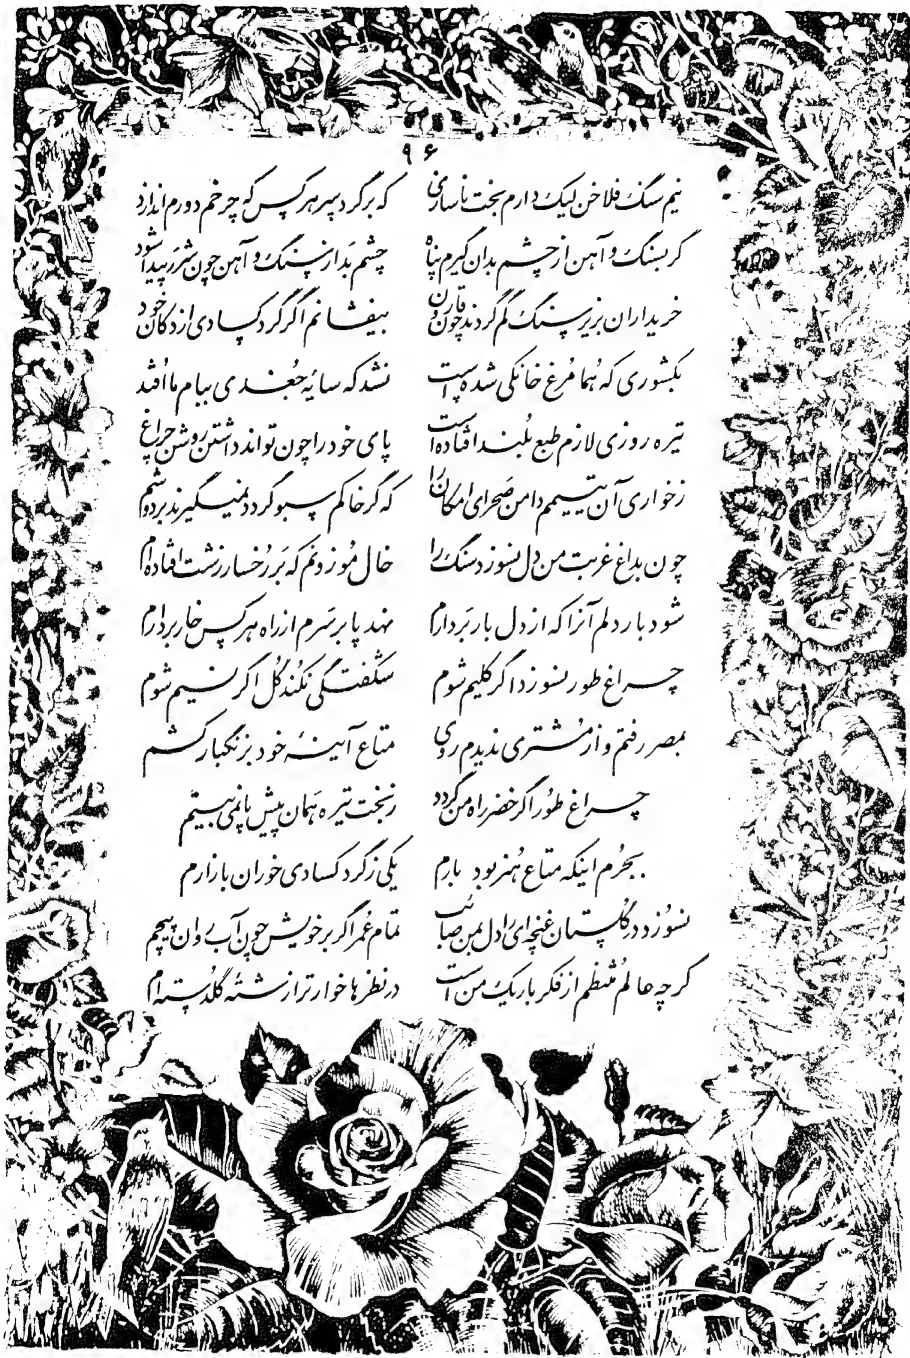 ۹۶
نیم سنگ فلاخن لیک دارم بخت ناسازی که برگرد سر هرکس که چرخم دورم اندازد
گر بسنگ و آهن از چشم بدان گیرم پناه چشم بد از سنگ و آهن چون شرر پیدا شود
خریداران بزیر سنگ گم گردند چون قارون بیفشانم اگر گرد کسادی از دکان خود
بکشوری که هما مرغ خانگی شده است نشد که سایه جغدی ببام ما افتد
تیره روزی لازم طبع بلند افتاده است پای خود را چون تواند داشتن روشن چراغ
ز خواری آن یتیمم دامن صحرای امکان را که گر خاکم سبو گردد نمیگیرند بر دوشم
چون بداغ غربت من دل نسوزد سنگ را خال موزونم که بر رخسار زشت افتاده‌ام
شود بار دلم آنرا که از دل بار بردارم نهد پا بر سرم از راه هرکس خار بردارم
چراغ طور نسوزد اگر کلیم شوم شکفتگی نکند گل اگر نسیم شوم
بمصر رفتم و از مشتری ندیدم روی متاع آینهٔ خود بزنگبار کشم
چراغ طور اگر خضر راه من گردد ز بخت تیره همان پیش پا نمی‌بینم
بجرم اینکه متاع هنر بود بارم یکی ز گرد کسادی خوران بازارم
نسوزد در گلستان غنچه‌ای را دل بمن صائب تمام عمر اگر بر خویش چون آب روان پیچم
گرچه عالم منتظم از فکر باریک من است در نظرها خوارتر از رشتهٔ گلدسته‌ام